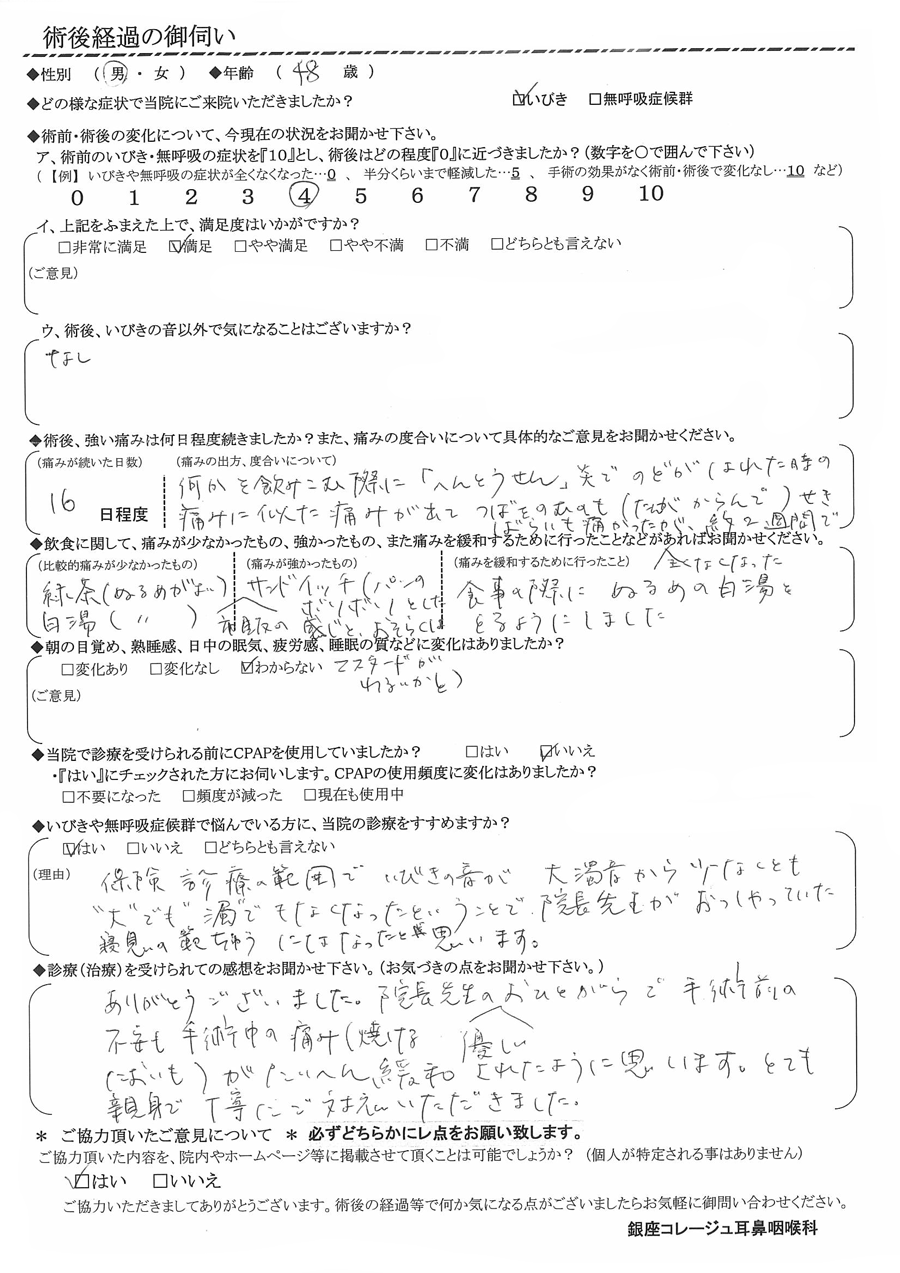 術後経過の御伺い
◆性別 ( 男 ・ 女 ) ◆年齢 ( 48 歳 )
◆どの様な症状で当院にご来院いただきましたか? ☑いびき □無呼吸症候群
◆術前・術後の変化について、今現在の状況をお聞かせ下さい。
ア、術前のいびき・無呼吸の症状を『10』とし、術後はどの程度『0』に近づきましたか?(数字を○で囲んで下さい)
(【例】いびきや無呼吸の症状が全くなくなった…0 、 半分くらいまで軽減した…5 、 手術の効果がなく術前・術後で変化なし…10 など)
0 1 2 3 4 5 6 7 8 9 10
イ、上記をふまえた上で、満足度はいかがですか?
□非常に満足 ☑満足 □やや満足 □やや不満 □不満 □どちらとも言えない
(ご意見)
ウ、術後、いびきの音以外で気になることはございますか?
なし
◆術後、強い痛みは何日程度続きましたか?また、痛みの度合いについて具体的なご意見をお聞かせください。
(痛みが続いた日数) (痛みの出方、度合いについて)
何かを飲みこむ際に「へんとうせん」炎でのどがはれた時の
16 日程度 痛みに似た痛みが出て つばをのむのも(たんがからんで)せき
ばらいも痛かったが、約2週間で
全くなくなった
◆飲食に関して、痛みが少なかったもの、強かったもの、また痛みを緩和するために行ったことなどがあればお聞かせください。
(比較的痛みが少なかったもの) (痛みが強かったもの) (痛みを緩和するために行ったこと)
緑茶(ぬるめがよい) サンドイッチ(パンの 食事の際に ぬるめの白湯を
白湯( 〃 ) 市販の ぼりぼりとした とるようにしました
感じと、おそらくは
マスタードが
わるいかと)
◆朝の目覚め、熟睡感、日中の眠気、疲労感、睡眠の質などに変化はありましたか?
□変化あり □変化なし ☑わからない
(ご意見)
◆当院で診療を受けられる前にCPAPを使用していましたか? □はい ☑いいえ
・『はい』にチェックされた方にお伺いします。CPAPの使用頻度に変化はありましたか?
□不要になった □頻度が減った □現在も使用中
◆いびきや無呼吸症候群で悩んでいる方に、当院の診療をすすめますか?
☑はい □いいえ □どちらとも言えない
(理由) 保険診療の範囲で いびきの音が 大濁音から少なくとも
"大"でも"濁"でもなくなったということで、院長先生がおっしゃっていた
寝息の範ちゅうにはなったと思います。
◆診療(治療)を受けられての感想をお聞かせ下さい。(お気づきの点をお聞かせ下さい。)
ありがとうございました。院長先生の優しいおひとがらで手術前の
不安も手術中の痛み(焼ける
においも)がたいへん緩和されたように思います。とても
親身で丁寧にご対応いただきました。
＊ ご協力頂いたご意見について ＊ 必ずどちらかにレ点をお願い致します。
ご協力頂いた内容を、院内やホームページ等に掲載させて頂くことは可能でしょうか? (個人が特定される事はありません)
☑はい □いいえ
ご協力いただきましてありがとうございます。術後の経過等で何か気になる点がございましたらお気軽に御問い合わせください。
銀座コレージュ耳鼻咽喉科